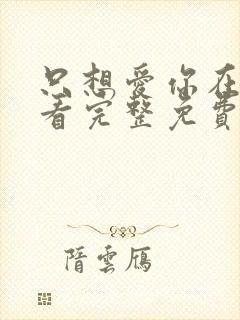 只想愛你在
看完整免費
隋雲鴈